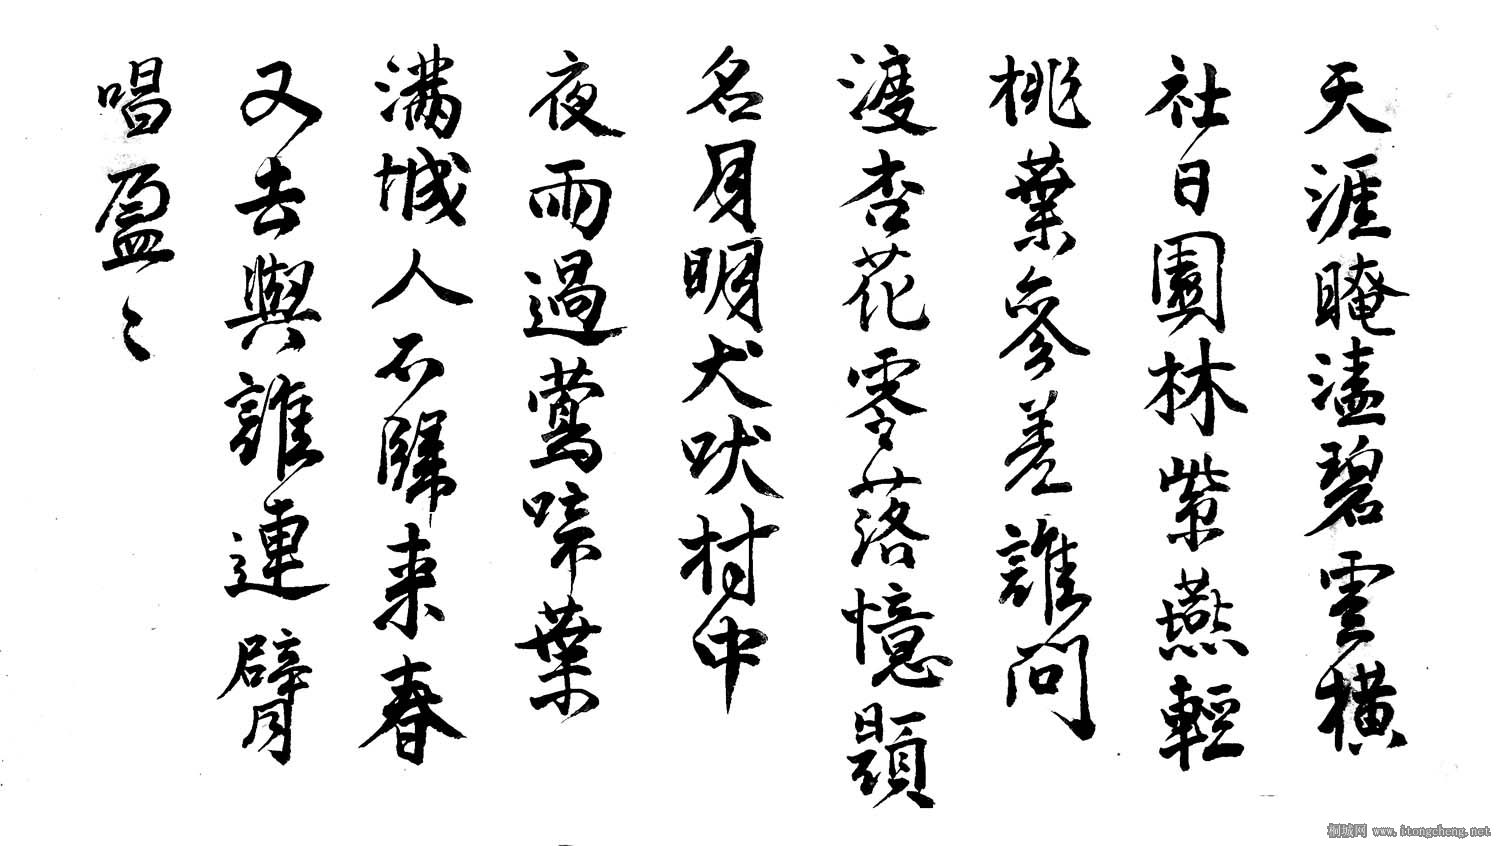 天涯晻溘碧雲橫
社日園林紫燕輕
桃葉參差誰問
渡杏花零落憶題
名月明犬吠村中
夜雨過鶯啼葉
滿城人不歸來春
又去與誰連臂
唱盈〻
桐城网 www.itongcheng.net